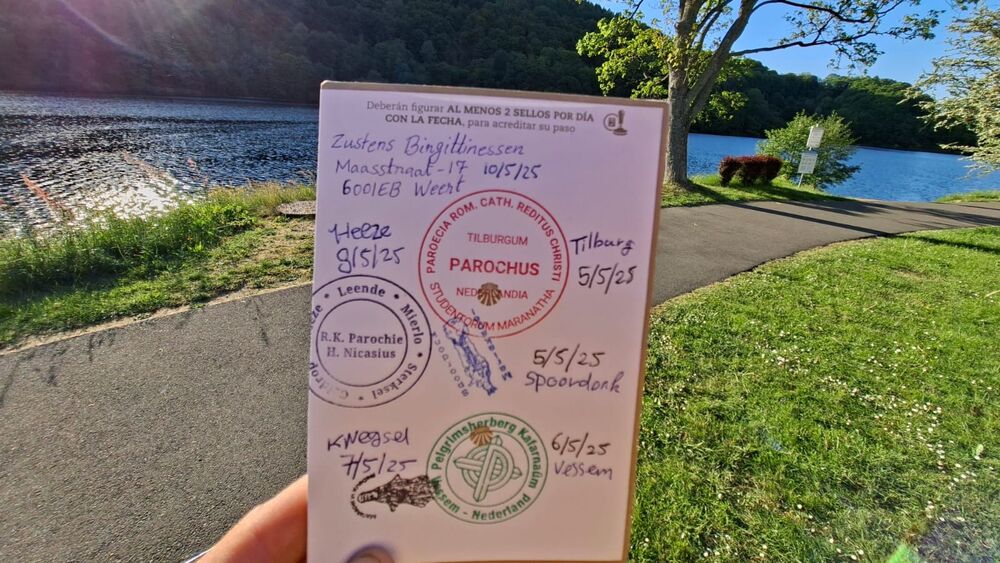 Deberán figurar AL MENOS 2 SELLOS POR DÍA
CON LA FECHA, para acreditar su paso
Zustens Bingittinessen
Maasstraat-17 10/5/25
6001EB Weert
Heeze
9/5/25
PAROECIA ROM. CATH. REDITUS CHRISTI
TILBURGUM
PAROCHUS
NEDERLANDIA
STUDENTORUM MARANATHA
Tilburg
5/5/25
Leende • Mierlo • Sterksel •
R.K. Parochie
H. Nicasius
5/5/25
Spoordonk
Kwegsel
7/5/25
Pelgrimsherberg Kafarnaüm
Vessem - Nederland
6/5/25
Vessem